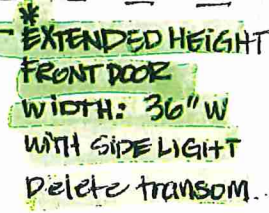 *
EXTENDED HEIGHT
FRONT DOOR
WIDTH: 36" W
WITH SIDE LIGHT
Delete transom.